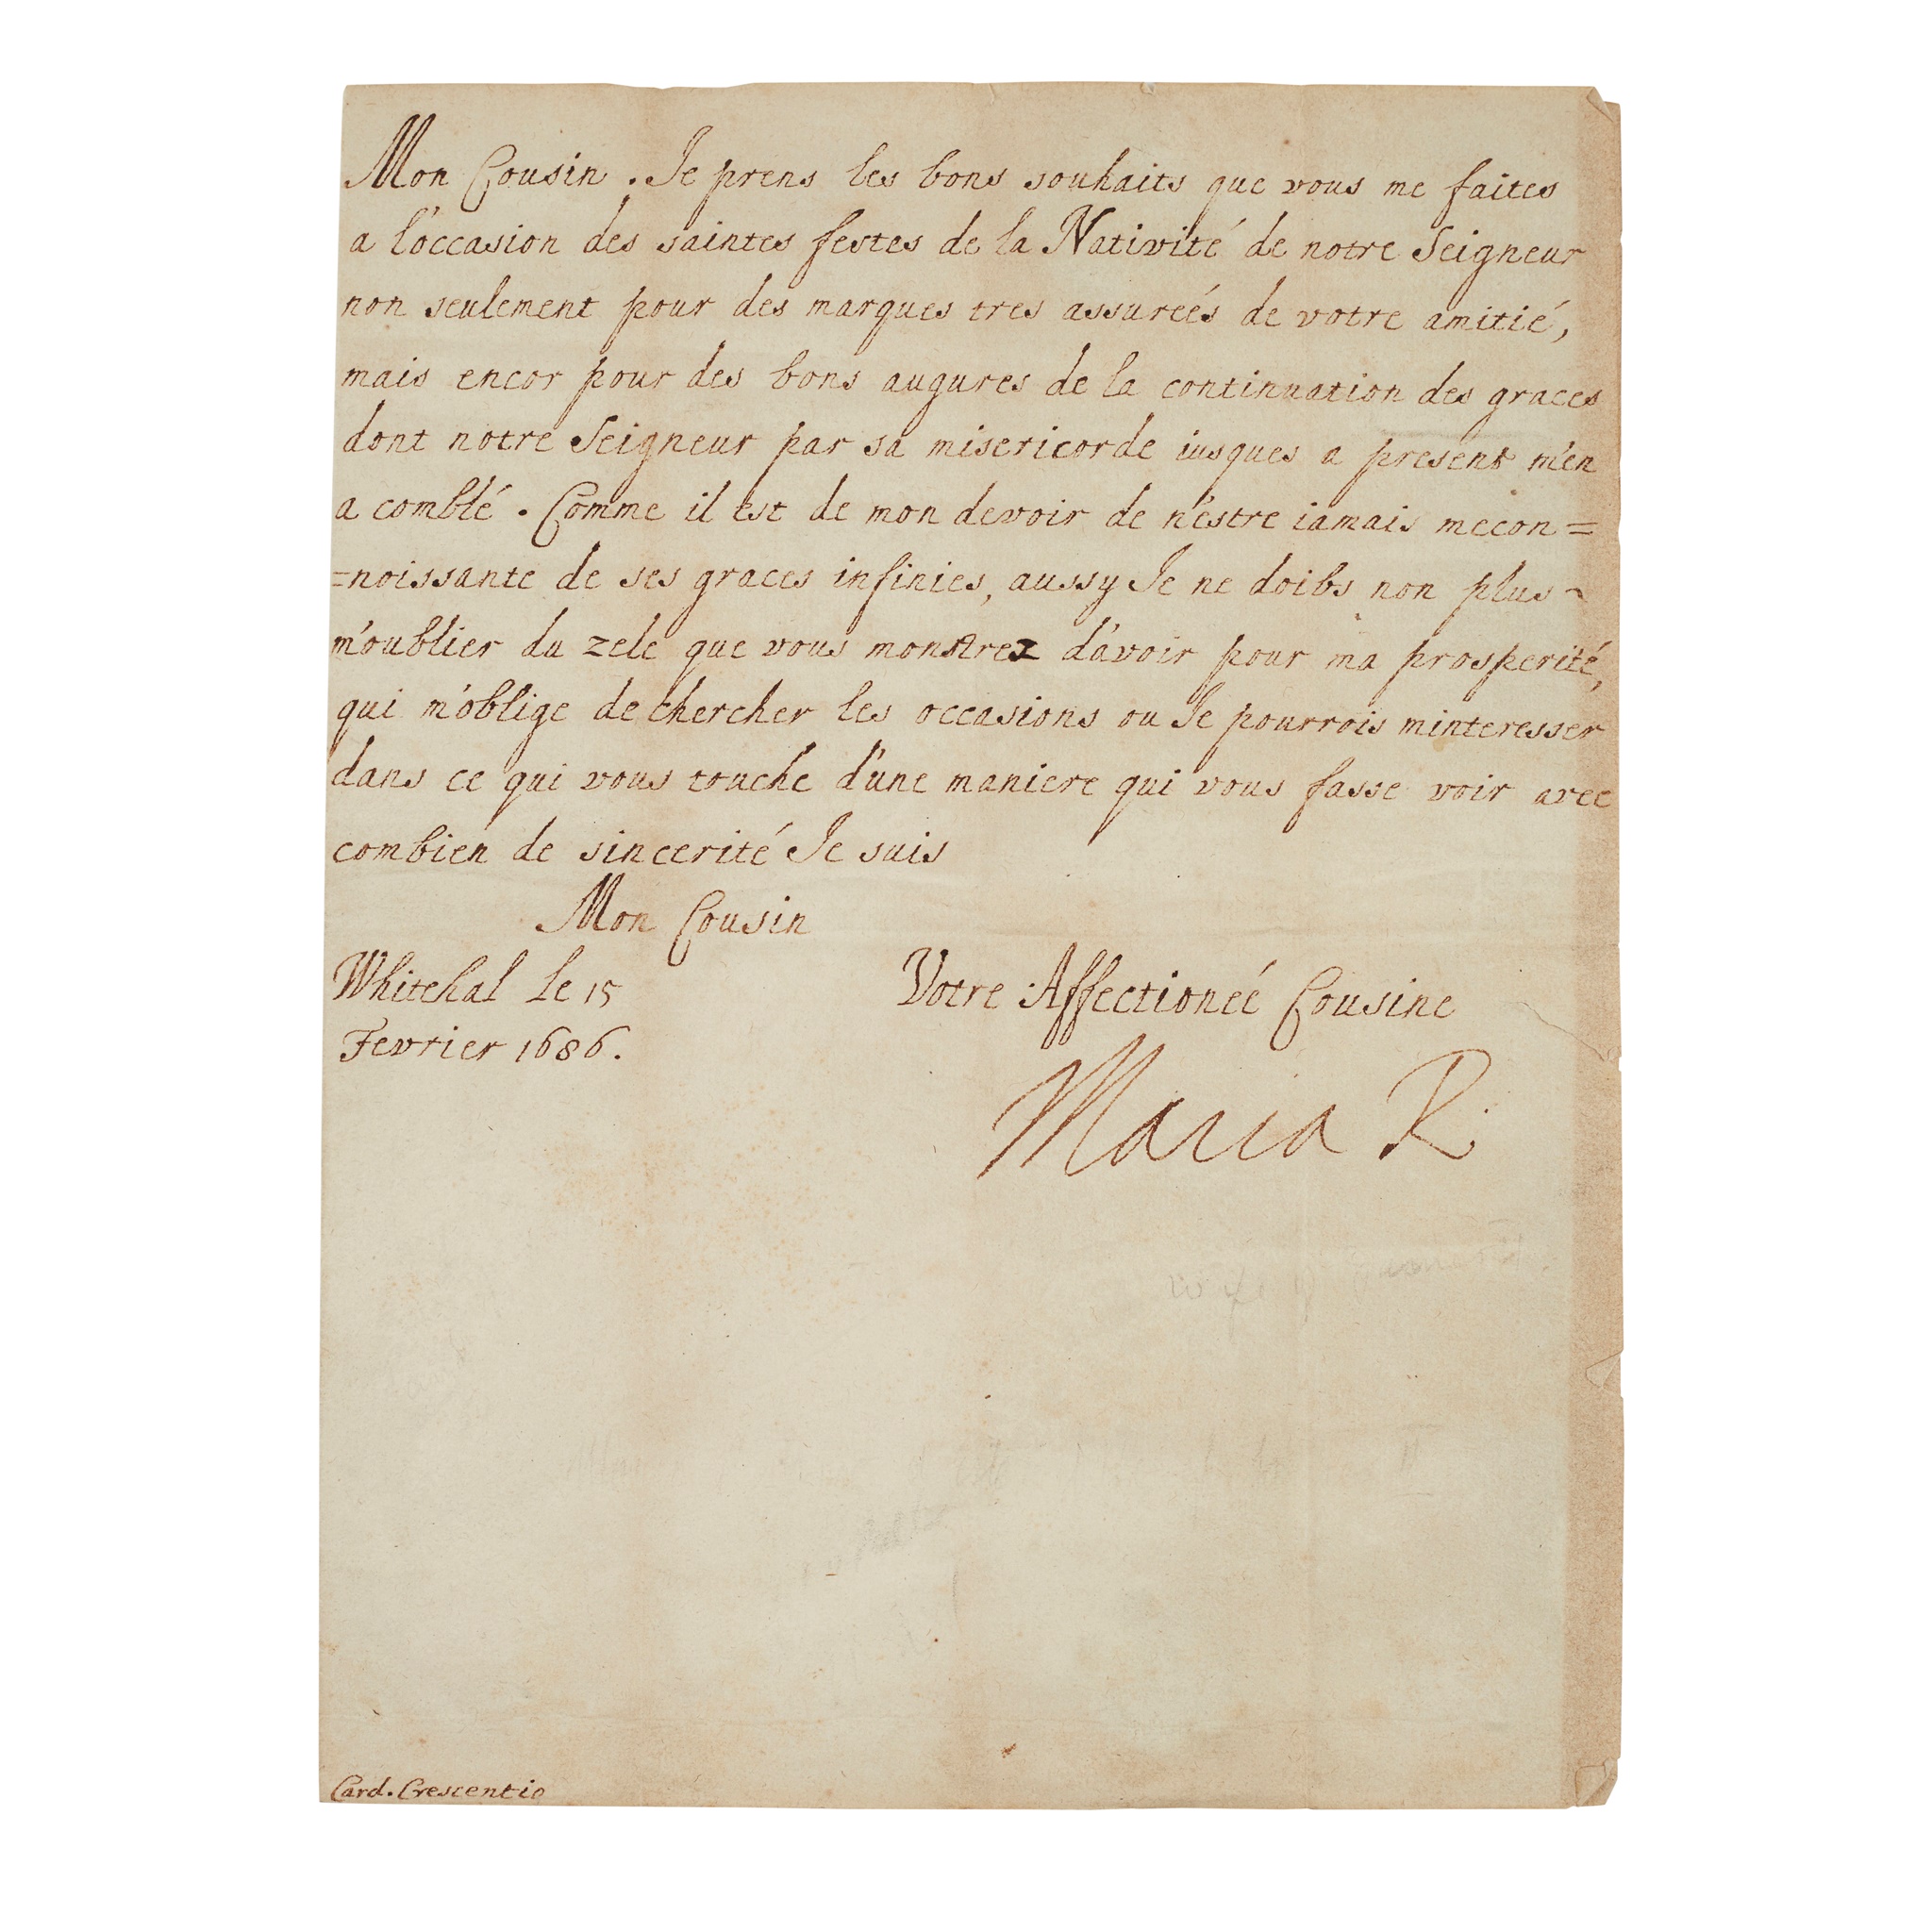 Mon Cousin . Je prens les bons souhaits que vous me faites
a l'occasion des saintes festes de la Nativité de notre Seigneur
non seulement pour des marques tres assureés de votre amitié,
mais encor pour des bons augures de la continuation des graces
dont notre Seigneur par sa misericorde iusques a present m'en
a comblé . Comme il est de mon devoir de n'estre iamais mecon=
=noissante de ses graces infinies, aussy Je ne doibs non plus ~
m'oublier du zele que vous monstrez d'avoir pour ma prosperité,
qui m'oblige de chercher les occasions ou Je pourrois minteresser
dans ce qui vous touche d'une maniere qui vous fasse voir avec
combien de sincerité Je suis
Mon Cousin
Whitehal le 15
Fevrier 1686.
Votre Affectioneé Cousine
Maria R
wife of
Card. Crescentio